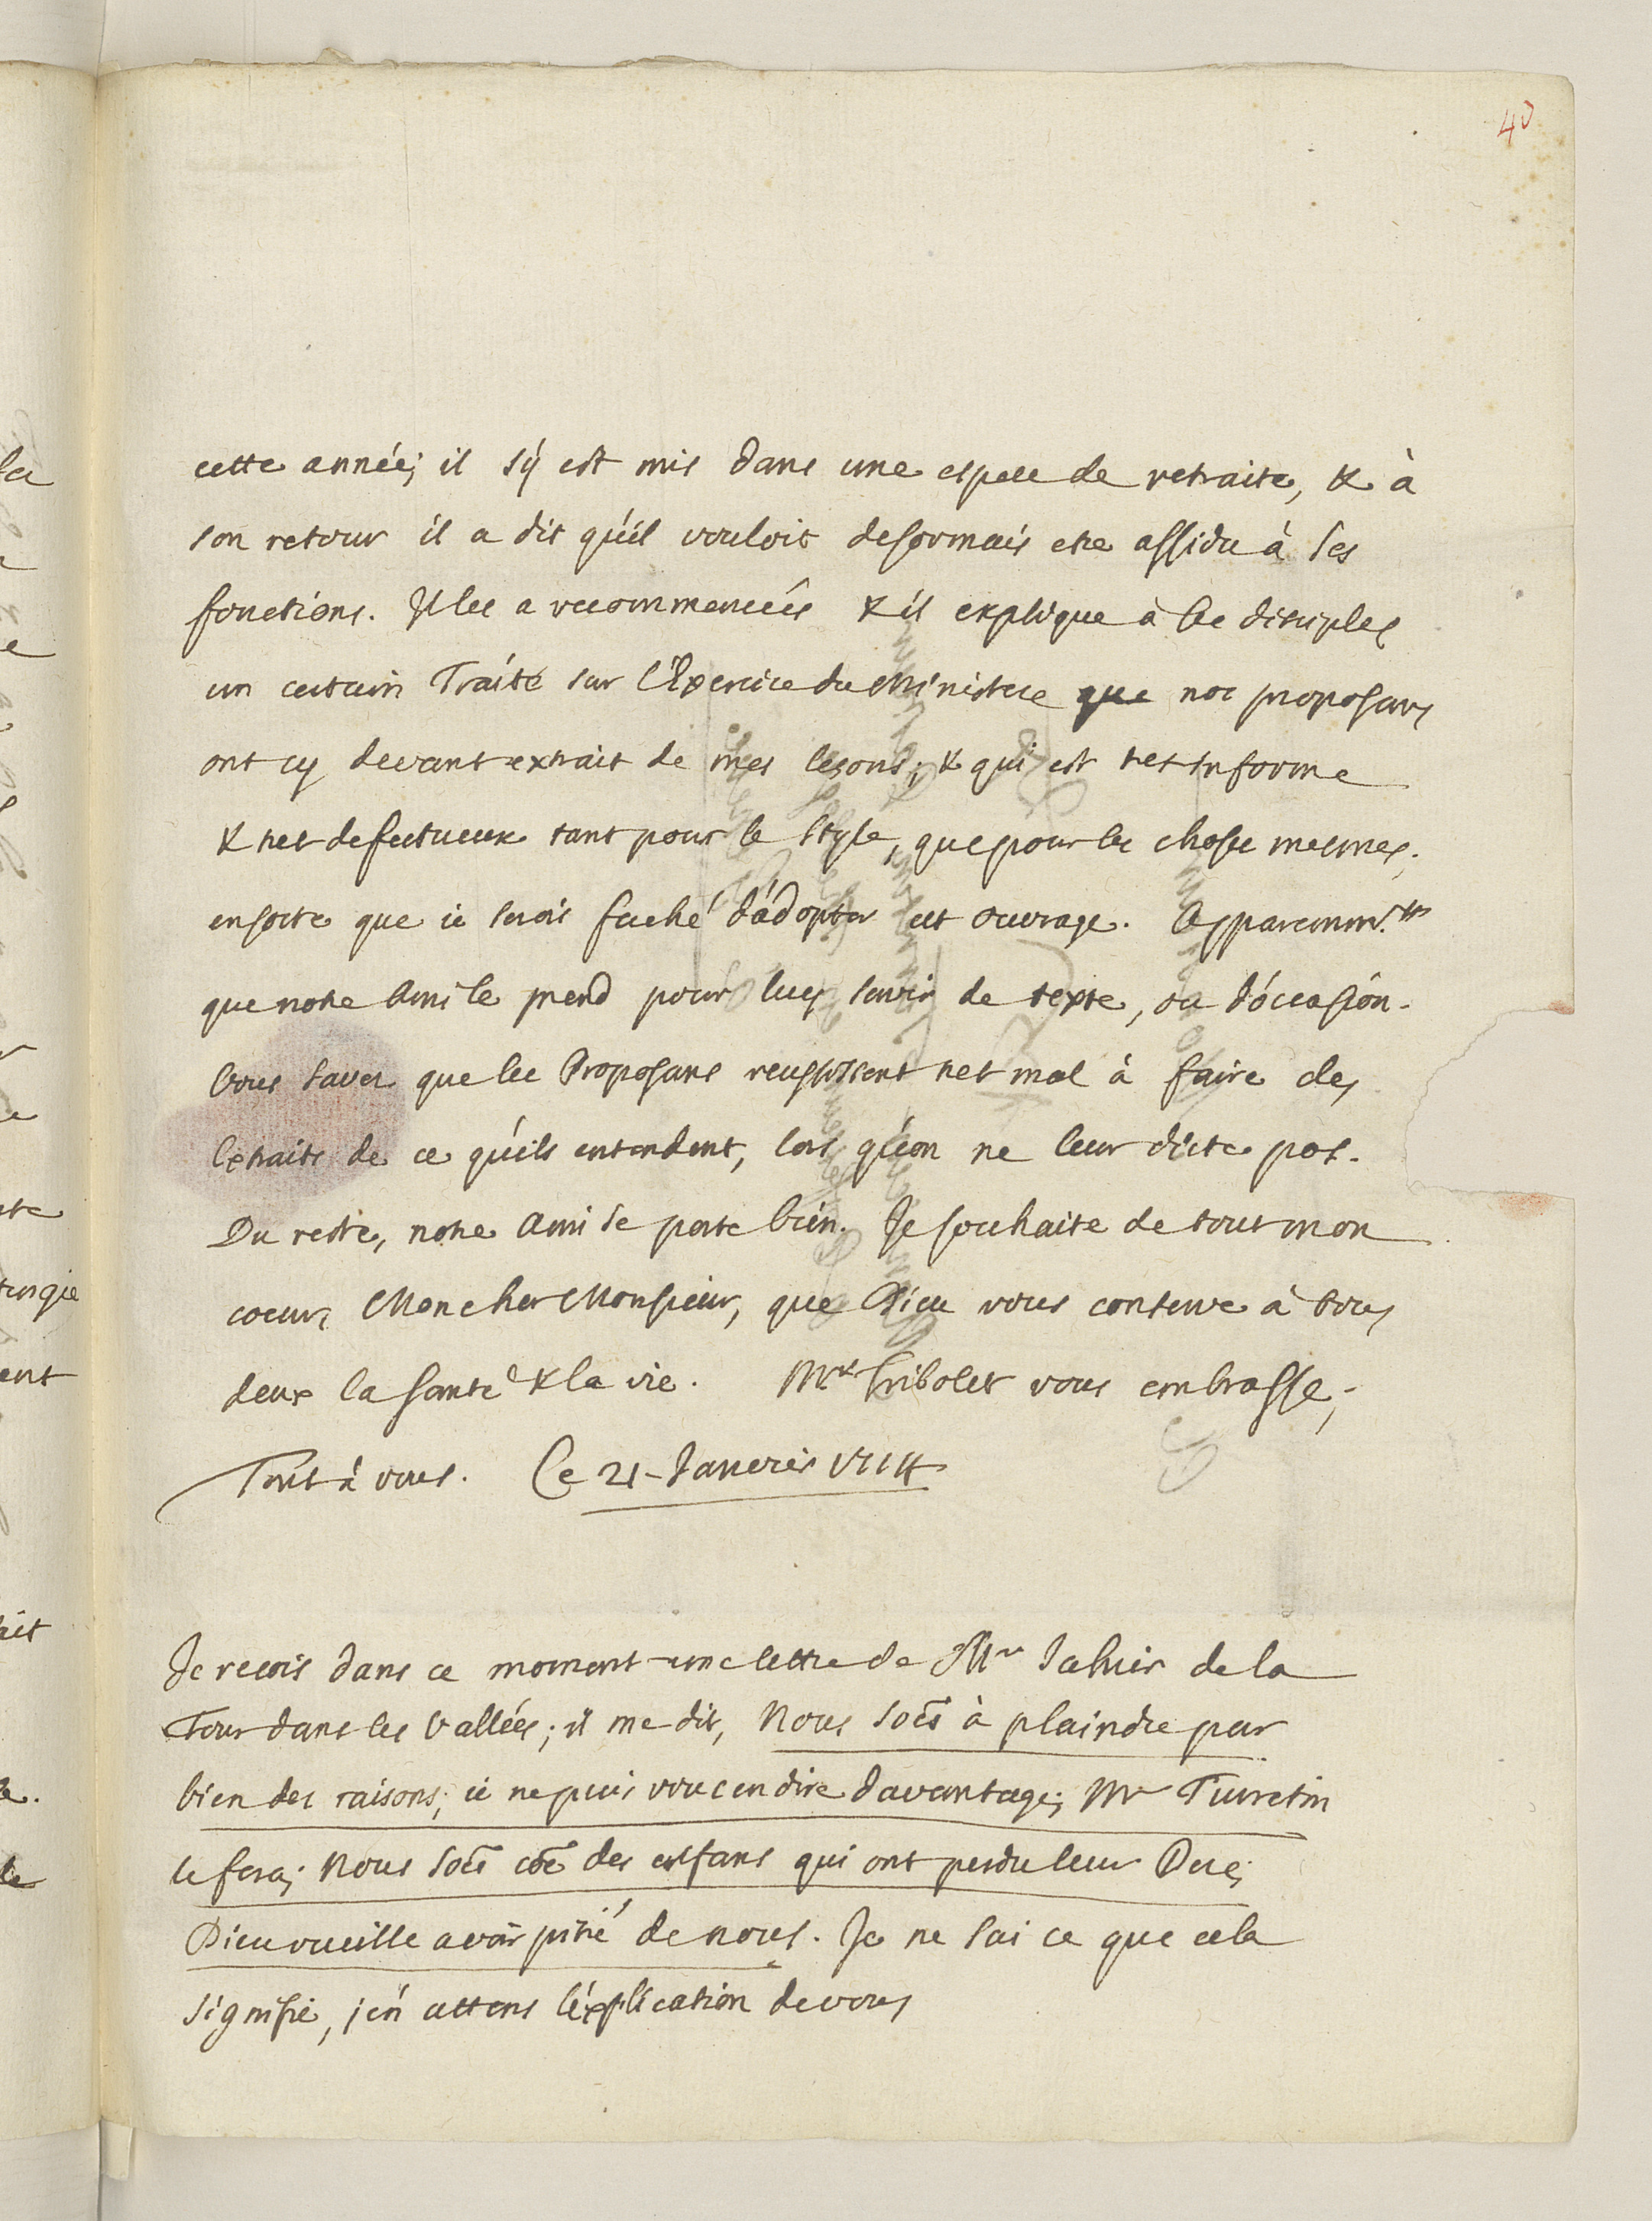 40
cette année; il s'ÿ est mis dans une espece de retraite, & à
son retour il a dit qu'il vouloit desormais etre assidu à ses
fonctions. Il les a recommencées & il explique à ses disciples
un certain Traité sur l'Exercice du Ministere que nos proposans
ont cy devant extrait de mes leçons; & qui est tres informe
& tres defectueux tant pour le style, que pour les choses mesmes;
ensorte que ie serois faché d'adopter cet ouvrage. Apparemmt.
que notre Ami le prend pour luy servir de texte, ou d'occasion.
Vous savez que les Proposans reussissent tres mal à faire des
Extraits de ce qu'ils entendent, lors qu'on ne leur dicte pas.
Du reste, notre Ami se porte bien. Je souhaite de tout mon
coeur, Mon cher Monsieur, que Dieu vous conserve à tous
deux la santé & la vie. Mr. Tribolet vous embrasse;
Tout à vous. Ce 21 Janvier 1714
Je reçois dans ce moment une lettre de Mr Jahier de la
Tour dans les Vallées; il me dit, Nous soẽs à plaindre par
bien des raisons; ie ne puis vous en dire davantage; Mr Turretin
le fera; Nous soẽs cõe des enfans qui ont perdu leur Pere;
Dieu vueille avoir pitié de nous. Je ne sai ce que cela
signifie, j'en attens l'explication de vous
la
ent
ait
le